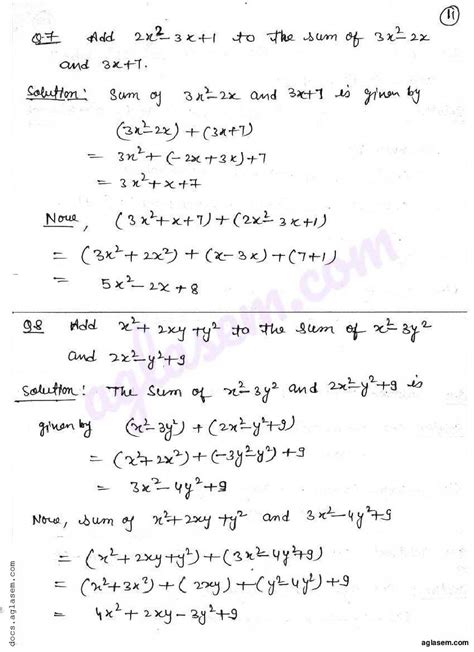 11
Q.7 Add 2x²-3x+1 to the sum of 3x²-2x
and 3x+7.
Solution: Sum of 3x²-2x and 3x+7 is given by
(3x²-2x) + (3x+7)
= 3x²+(-2x+3x)+7
= 3x²+x+7
Now, (3x²+x+7)+(2x²-3x+1)
= (3x²+2x²)+(x-3x)+(7+1)
= 5x²-2x+8
Q.8 Add x²+2xy+y² to the sum of x²-3y²
and 2x²-y²+9
Solution: The sum of x²-3y² and 2x²-y²+9 is
given by (x²-3y²)+(2x²-y²+9)
= (x²+2x²)+(-3y²-y²)+9
= 3x²-4y²+9
Now, sum of x²+2xy+y² and 3x²-4y²+9
= (x²+2xy+y²)+(3x²-4y²+9)
= (x²+3x²)+(2xy)+(y²-4y²)+9
= 4x²+2xy-3y²+9
aglasem.com
docs.aglasem.com
aglasem.com